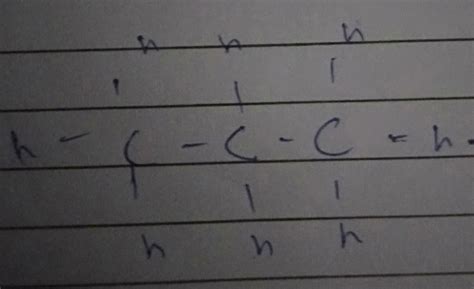 h h h
h - C - C - C - h
h h h